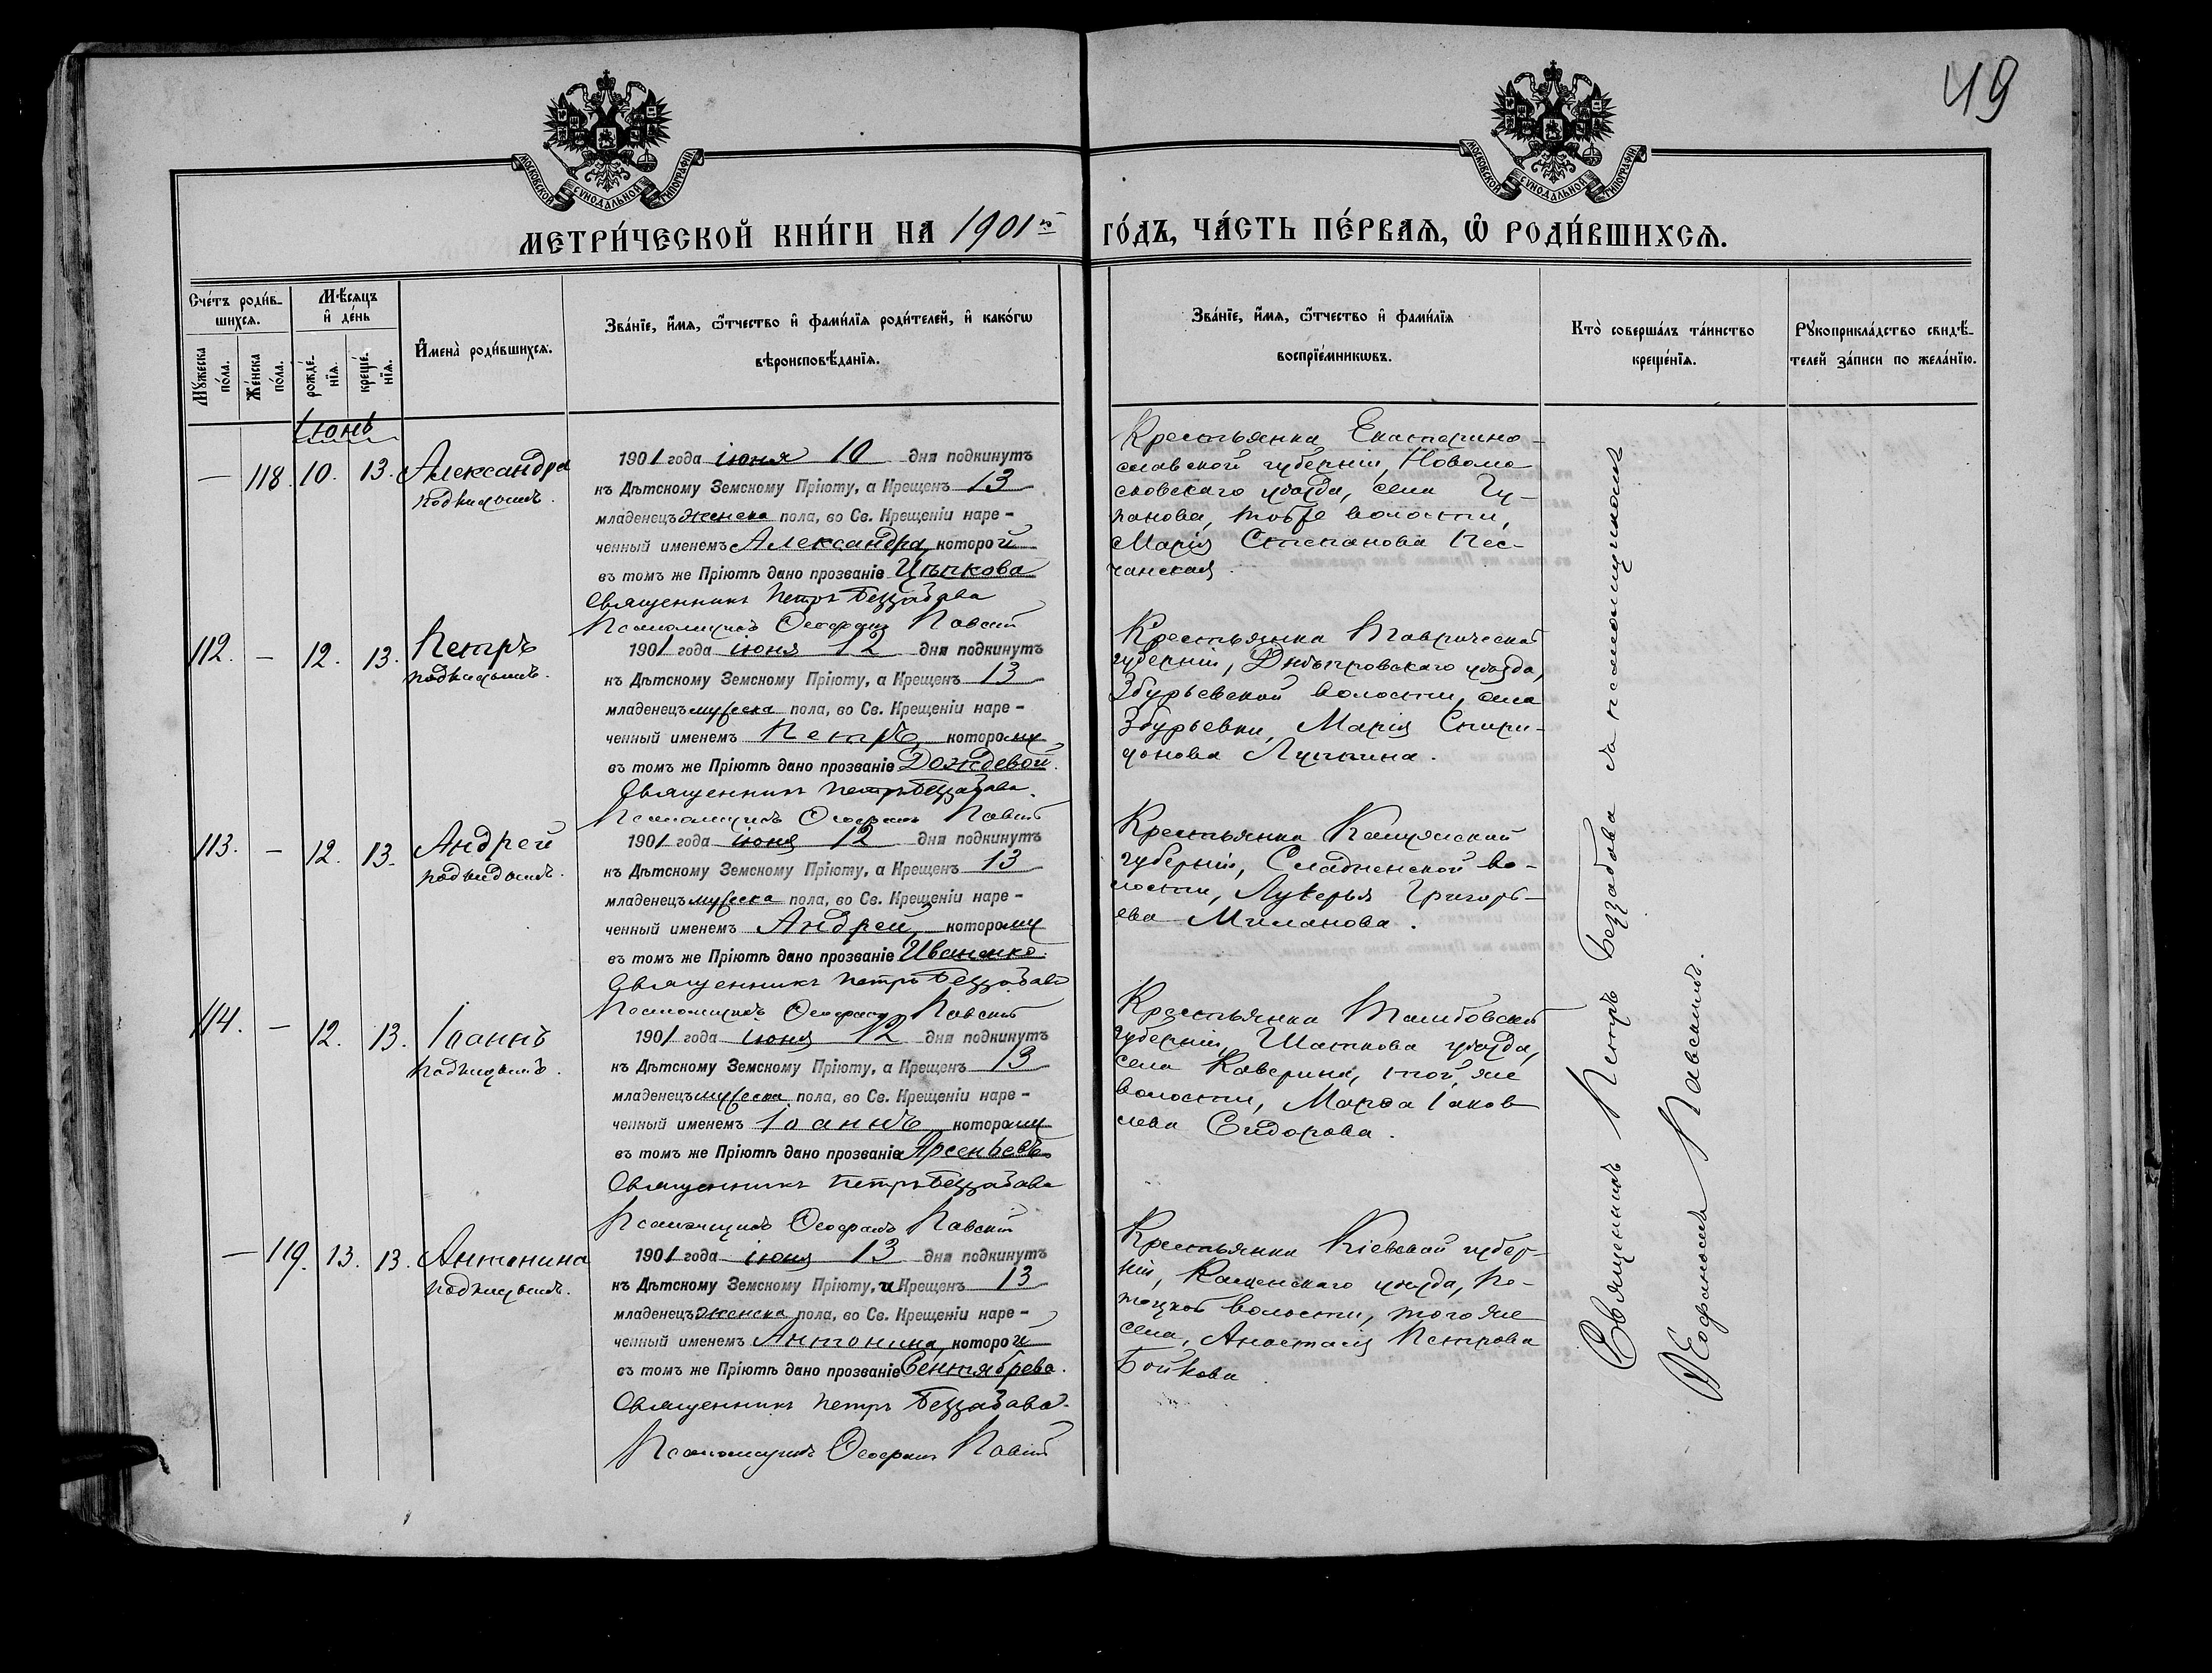 49
МОСКОВСКОЙ СѴНОДАЛЬНОЙ ТИПОГРАФІИ
МОСКОВСКОЙ СѴНОДАЛЬНОЙ ТИПОГРАФІИ
МЕТРИ́ЧЕСКОЙ КНИ́ГИ НА 1901й ГО́ДЪ, ЧА́СТЬ ПЕ́РВАѦ, Ѡ РОДИ́ВШИХСѦ.
Сче́тъ роди́в-
шихся.
Мужеска по́ла.
Же́нска по́ла.
Мѣ́сяцъ и де́нь
рожде́-
нія.
креще́-
нія.
Имена̀ роди́вшихся.
Зва́ніе, и́мя, ѻ́тчество и фами́лія роди́телей, и како́гѡ
вѣроисповѣ́данія.
Зва́ніе, и́мя, ѻ́тчество и фами́лія
воспріе́мникѡвъ.
Кто̀ соверша́лъ та́инство
креще́нія.
Рукоприкла́дство свидѣ́-
телей за́писи по жела́нію.
Іюнь
— 118. 10. 13. Александра
подкидышъ.
1901 года іюня 10 дня подкинутъ
къ Дѣтскому Земскому Пріюту, а Крещенъ 13
младенецъ женска пола, во Св. Крещеніи наре-
ченный именемъ Александра, которой
въ томъ же Пріютѣ дано прозваніе Цѣпкова
Священникъ Петръ Беззабава
Псаломщикъ Ѳеофанъ Павскій
Крестьянка Екатерино-
славской губерніи, Новомо
сковскаго уѣзда, села
той же волости,
Марія Степанова Пес-
чанская.
112. — 12. 13. Петръ
подкидышъ.
1901 года іюня 12 дня подкинутъ
къ Дѣтскому Земскому Пріюту, а Крещенъ 13
младенецъ мужеска пола, во Св. Крещеніи наре-
ченный именемъ Петръ, которому
въ томъ же Пріютѣ дано прозваніе Дождевой.
Священникъ Петръ Беззабава.
Псаломщикъ Ѳеофанъ Павскій
Крестьянка Таврической
губерніи, Днѣпровскаго уѣзда,
Збурьевской волости, села
Збурьевки, Марія Спири-
донова Лупкина.
113. — 12. 13. Андрей
подкидышъ.
1901 года іюня 12 дня подкинутъ
къ Дѣтскому Земскому Пріюту, а Крещенъ 13
младенецъ мужеска пола, во Св. Крещеніи наре-
ченный именемъ Андрей, которому
въ томъ же Пріютѣ дано прозваніе Иваненко.
Священникъ Петръ Беззабава
Псаломщикъ Ѳеофанъ Павскій
Крестьянка
губерніи, во-
лости, Лукерья Григорь-
ева Миланова.
114. — 12. 13. Іоаннъ
подкидышъ.
1901 года іюня 12 дня подкинутъ
къ Дѣтскому Земскому Пріюту, а Крещенъ 13
младенецъ мужеска пола, во Св. Крещеніи наре-
ченный именемъ Іоаннъ, которому
въ томъ же Пріютѣ дано прозваніе Арсеньевъ.
Священникъ Петръ Беззабава
Псаломщикъ Ѳеофанъ Павскій
Крестьянка Тамбовской
губерніи, Шацкова уѣзда,
села Каверина, той же
волости, Марѳа Іаков
лева Сидорова.
— 119. 13. 13. Антонина
подкидышъ.
1901 года іюня 13 дня подкинутъ
къ Дѣтскому Земскому Пріюту, и Крещенъ 13
младенецъ женска пола, во Св. Крещеніи наре-
ченный именемъ Антонина, которой
въ томъ же Пріютѣ дано прозваніе Сентябрева.
Священникъ Петръ Беззабава.
Псаломщикъ Ѳеофанъ Павскій
Крестьянка Кіевской губер-
ніи, Каневскаго уѣзда, По-
тоцкой волости, того же
села, Анастасія Петрова
Бойкова.
Священникъ Петръ Беззабава съ псаломщикомъ
Ѳеофаномъ Павскимъ.